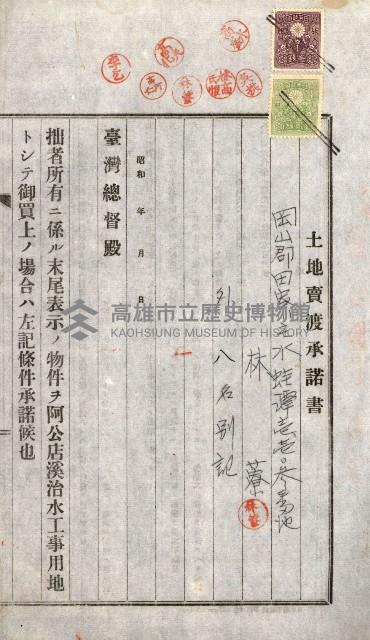 土地賣渡承諾書
岡山郡田寮庄水蛙潭壱壱〇参番地
林
外八名別記
昭和 年 月 日
臺灣總督殿
拙者所有ニ係ル末尾表示ノ物件ヲ阿公店溪治水工事用地
トシテ御買上ノ場合ハ左記條件承諾候也
高雄市立歷史博物館
KAOHSIUNG MUSEUM OF HISTORY